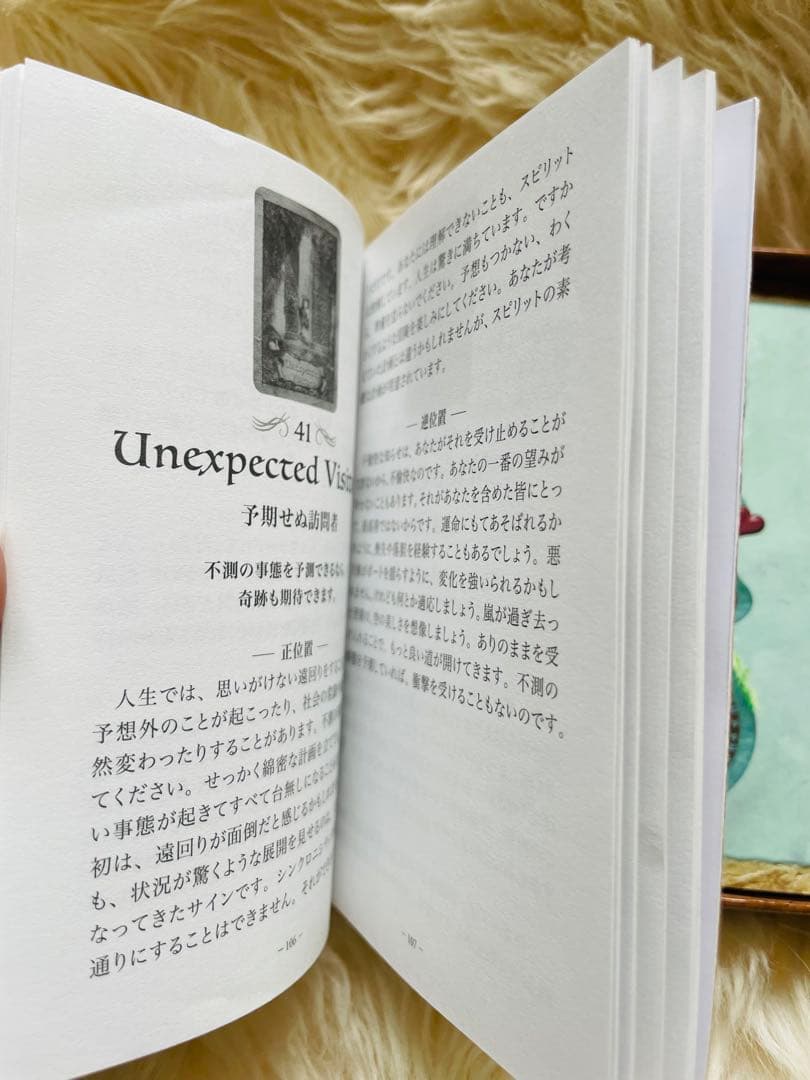 41
Unexpected Visi
予期せぬ訪問者
不測の事態を予測できるなら、
奇跡も期待できます。
— 正位置 —
人生では、思いがけない遠回りをする
予想外のことが起こったり、社会の
然変わったりすることがあります。不測の
てください。せっかく綿密な計画を立て
い事態が起きてすべて台無しになること
初は、遠回りが面倒だと感じるかもしれ
も、状況が驚くような展開を見せるのは、
なってきたサインです。シンクロニシ
通りにすることはできません。それが
– 106 –
あなたには理解できないことも、スピリット
います。人生は驚きに満ちています。ですか
ないでください。予想もつかない、わく
を楽しみにしてください。あなたが考
とは違うかもしれませんが、スピリットの素
用意されています。
— 逆位置 —
不愉快な知らせは、あなたがそれを受け止めることが
ないから、不愉快なのです。あなたの一番の望みが
ないこともあります。それがあなたを含めた皆にとっ
ではないからです。運命にもてあそばれるか
を経験することもあるでしょう。悪
ボートを揺らすように、変化を強いられるかもし
せん。けれども何とか適応しましょう。嵐が過ぎ去っ
の美しさを想像しましょう。ありのままを受
ることで、もっと良い道が開けてきます。不測の
していれば、衝撃を受けることもないのです。
– 107 –